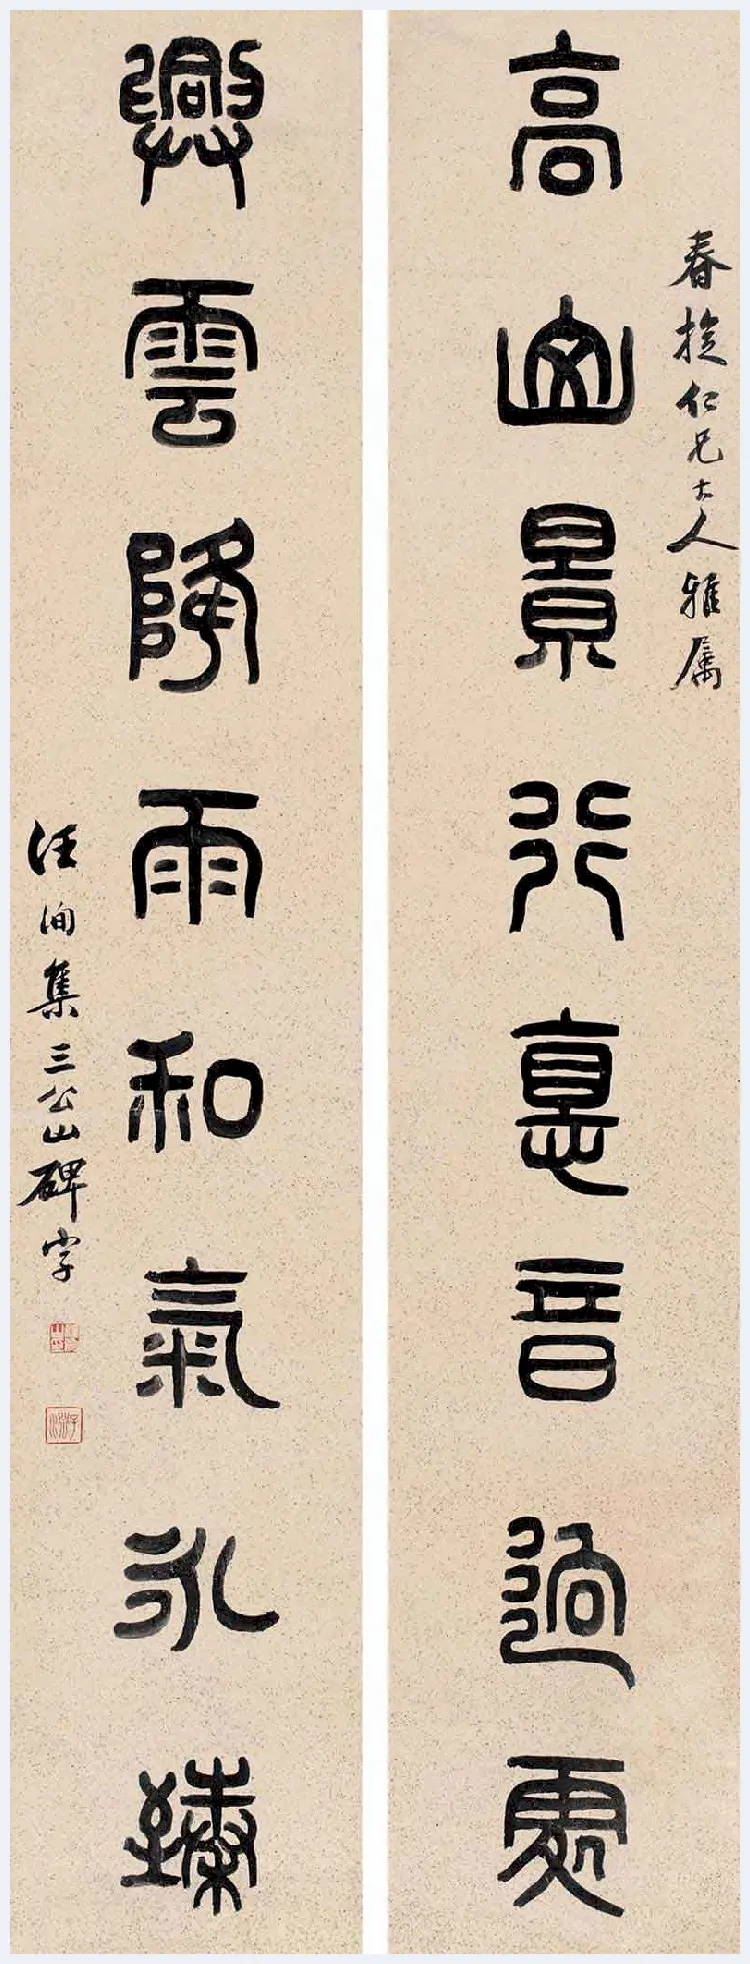 高山景行悳音迥處
春捷仁兄大人雅属
興雲降雨和氣永臻
汪洵集三公山碑字